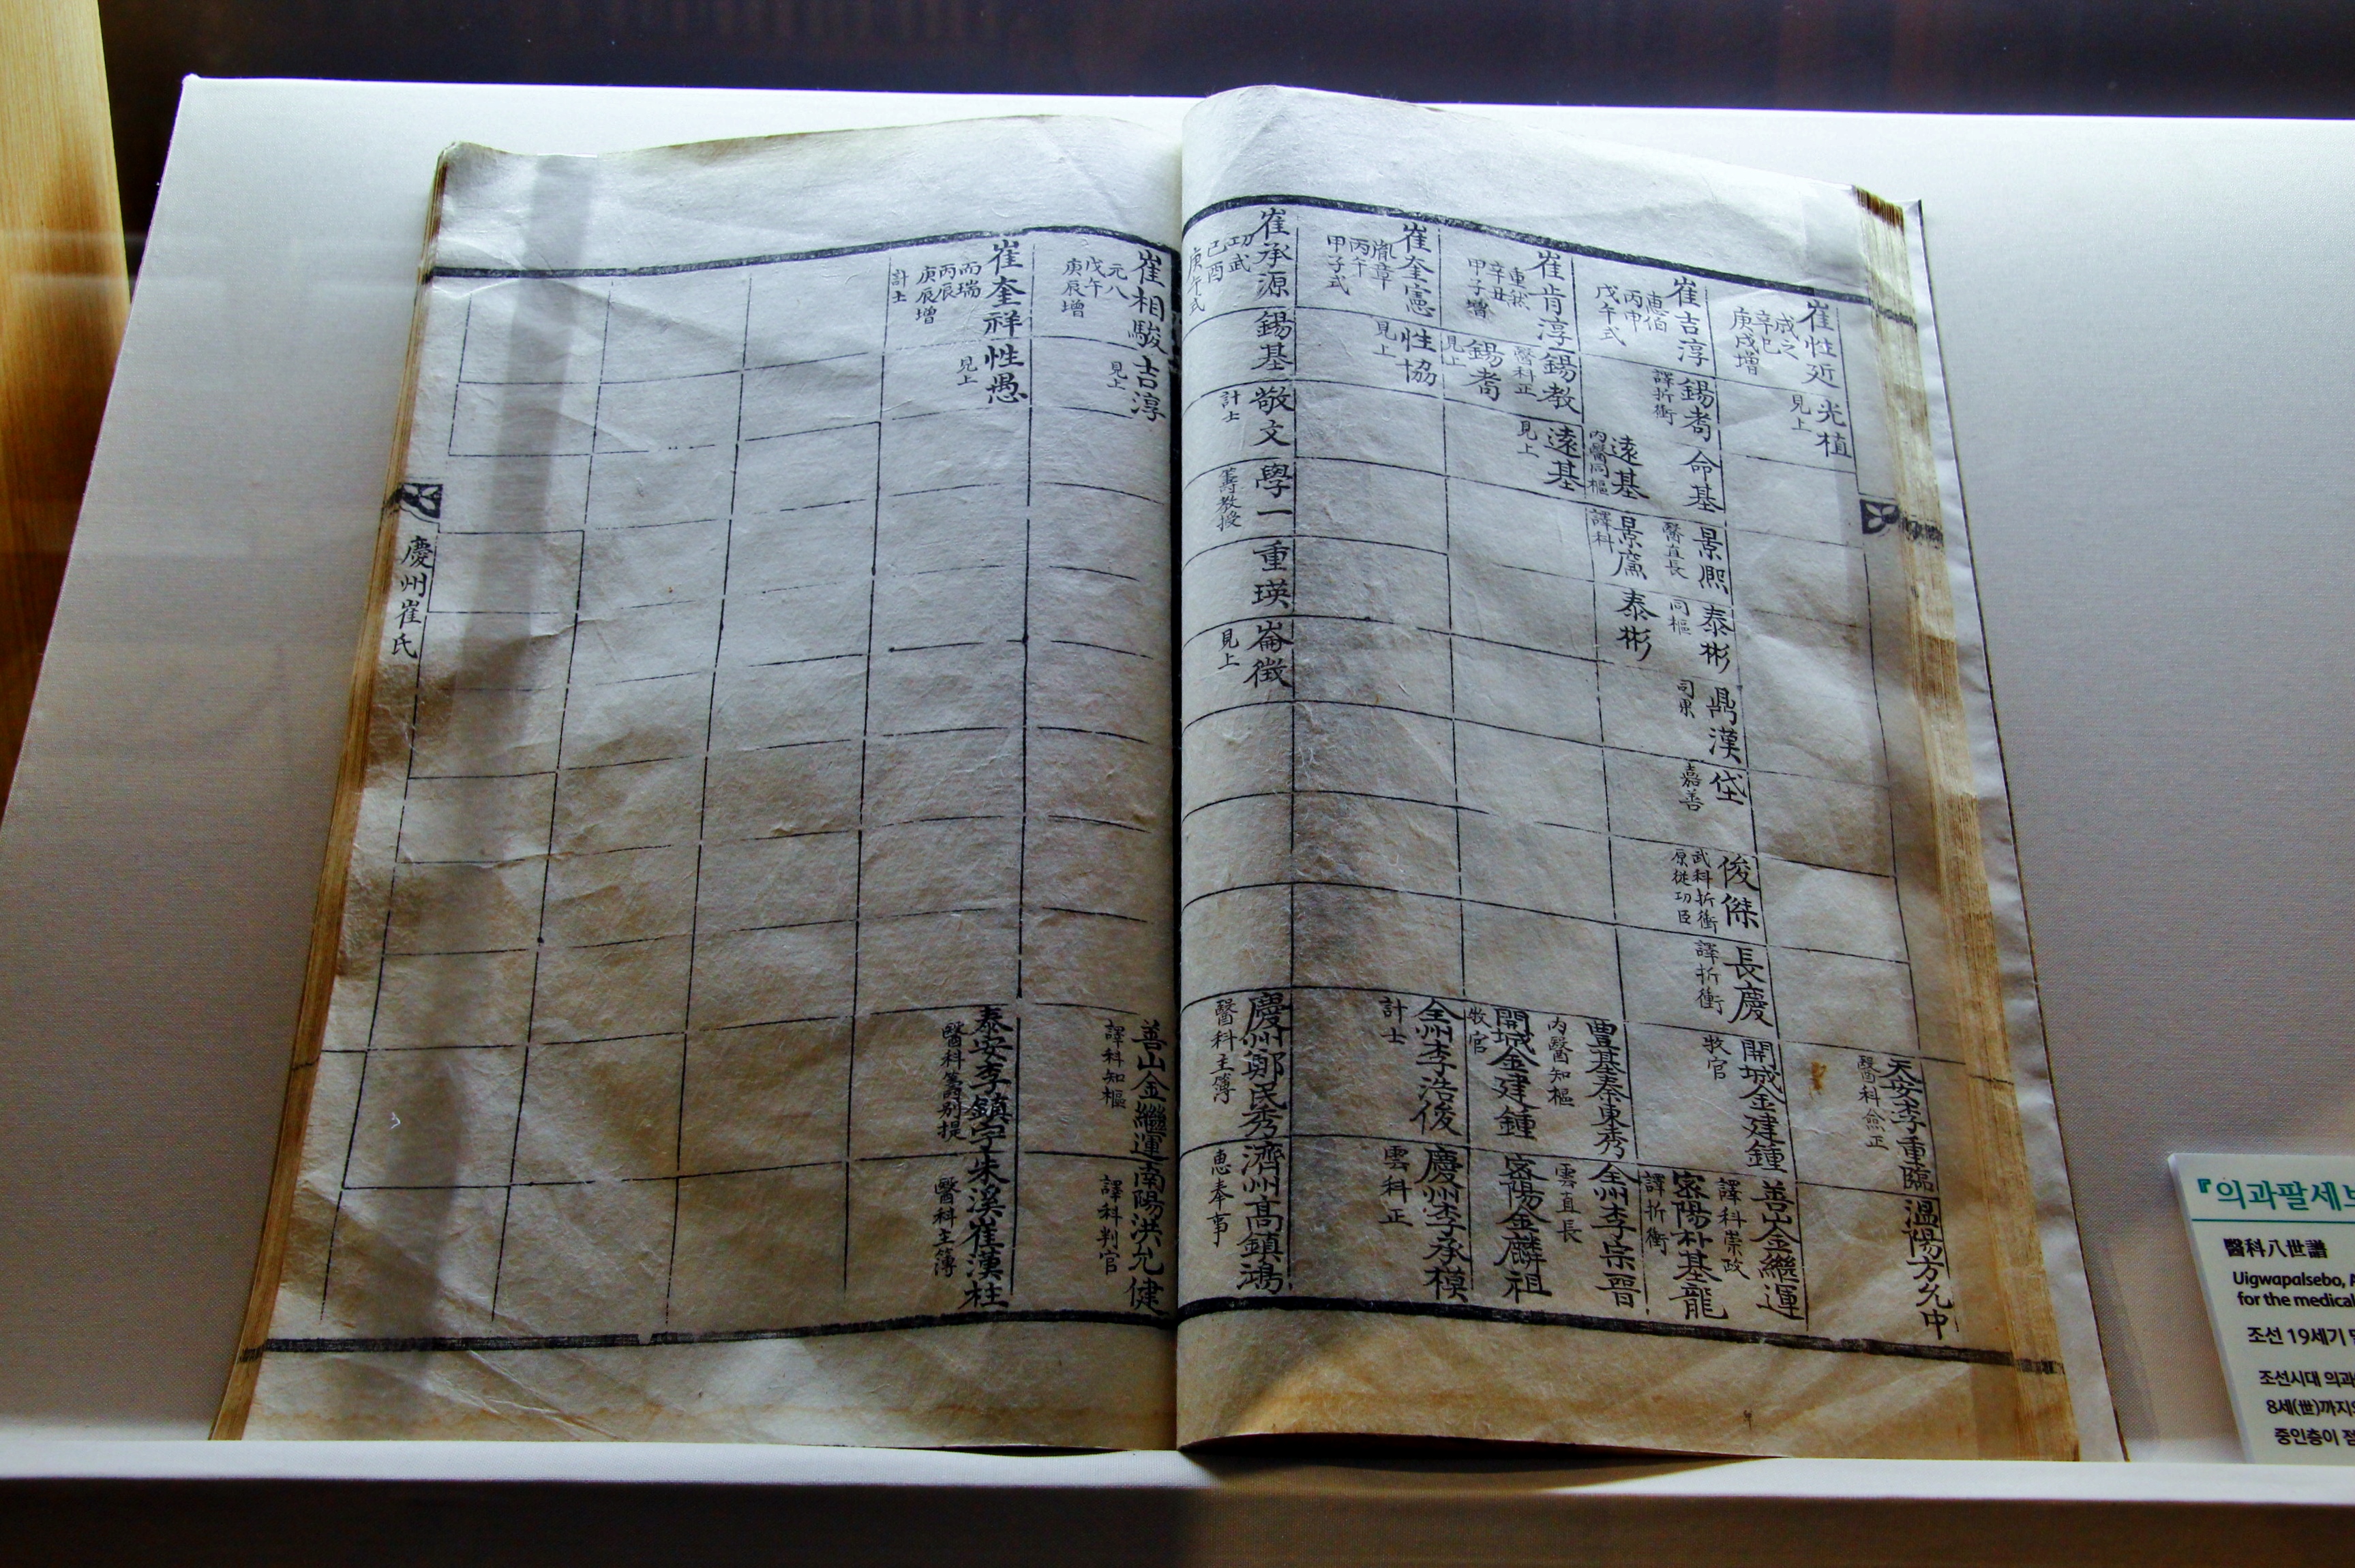 崔性近
成之
辛巳
庚戌增
光植
見上
天安李重臨
醫科僉正
溫陽方允中
崔吉淳
惠伯
丙申
戊午式
錫耈
譯折衝
命基
景熙
醫直長
泰彬
同樞
鼎漢
司果
岱
嘉善
俊傑
武科折衝
原從功臣
長慶
譯折衝
開城金建鍾
敎官
善山金繼運
譯科崇政
遠基
內醫同樞
景廉
譯科
泰彬
密陽朴基龍
譯折衝
崔肯淳
辛丑
甲子增
錫敎
醫科正
遠基
見上
豊基秦東秀
內醫知樞
全州李宗晉
雲直長
錫耈
見上
開城金建鍾
敎官
密陽金麟祖
崔奎憲
胤章
丙午
甲子式
性協
見上
全州李浩俊
計士
慶州李承模
雲科正
崔承源
功武
己酉
庚午式
錫基
敬文
計士
學一
籌敎授
重瑛
崙徵
見上
慶州鄭民秀
醫科主簿
濟州高鎮鴻
惠奉事
崔相駿
元八
戊午
庚辰增
吉淳
見上
善山金繼運
譯科知樞
南陽洪允健
譯科判官
崔奎祥
而瑞
丙辰
庚辰增
計士
性愚
見上
泰安李鎮宇
醫科籌別提
朱溪崔漢柱
醫科主簿
慶州崔氏
『의과팔세보
醫科八世譜
Uigwapalsebo,
for the medical
조선 19세기
조선시대 의과
8세(世)까지
중인층이